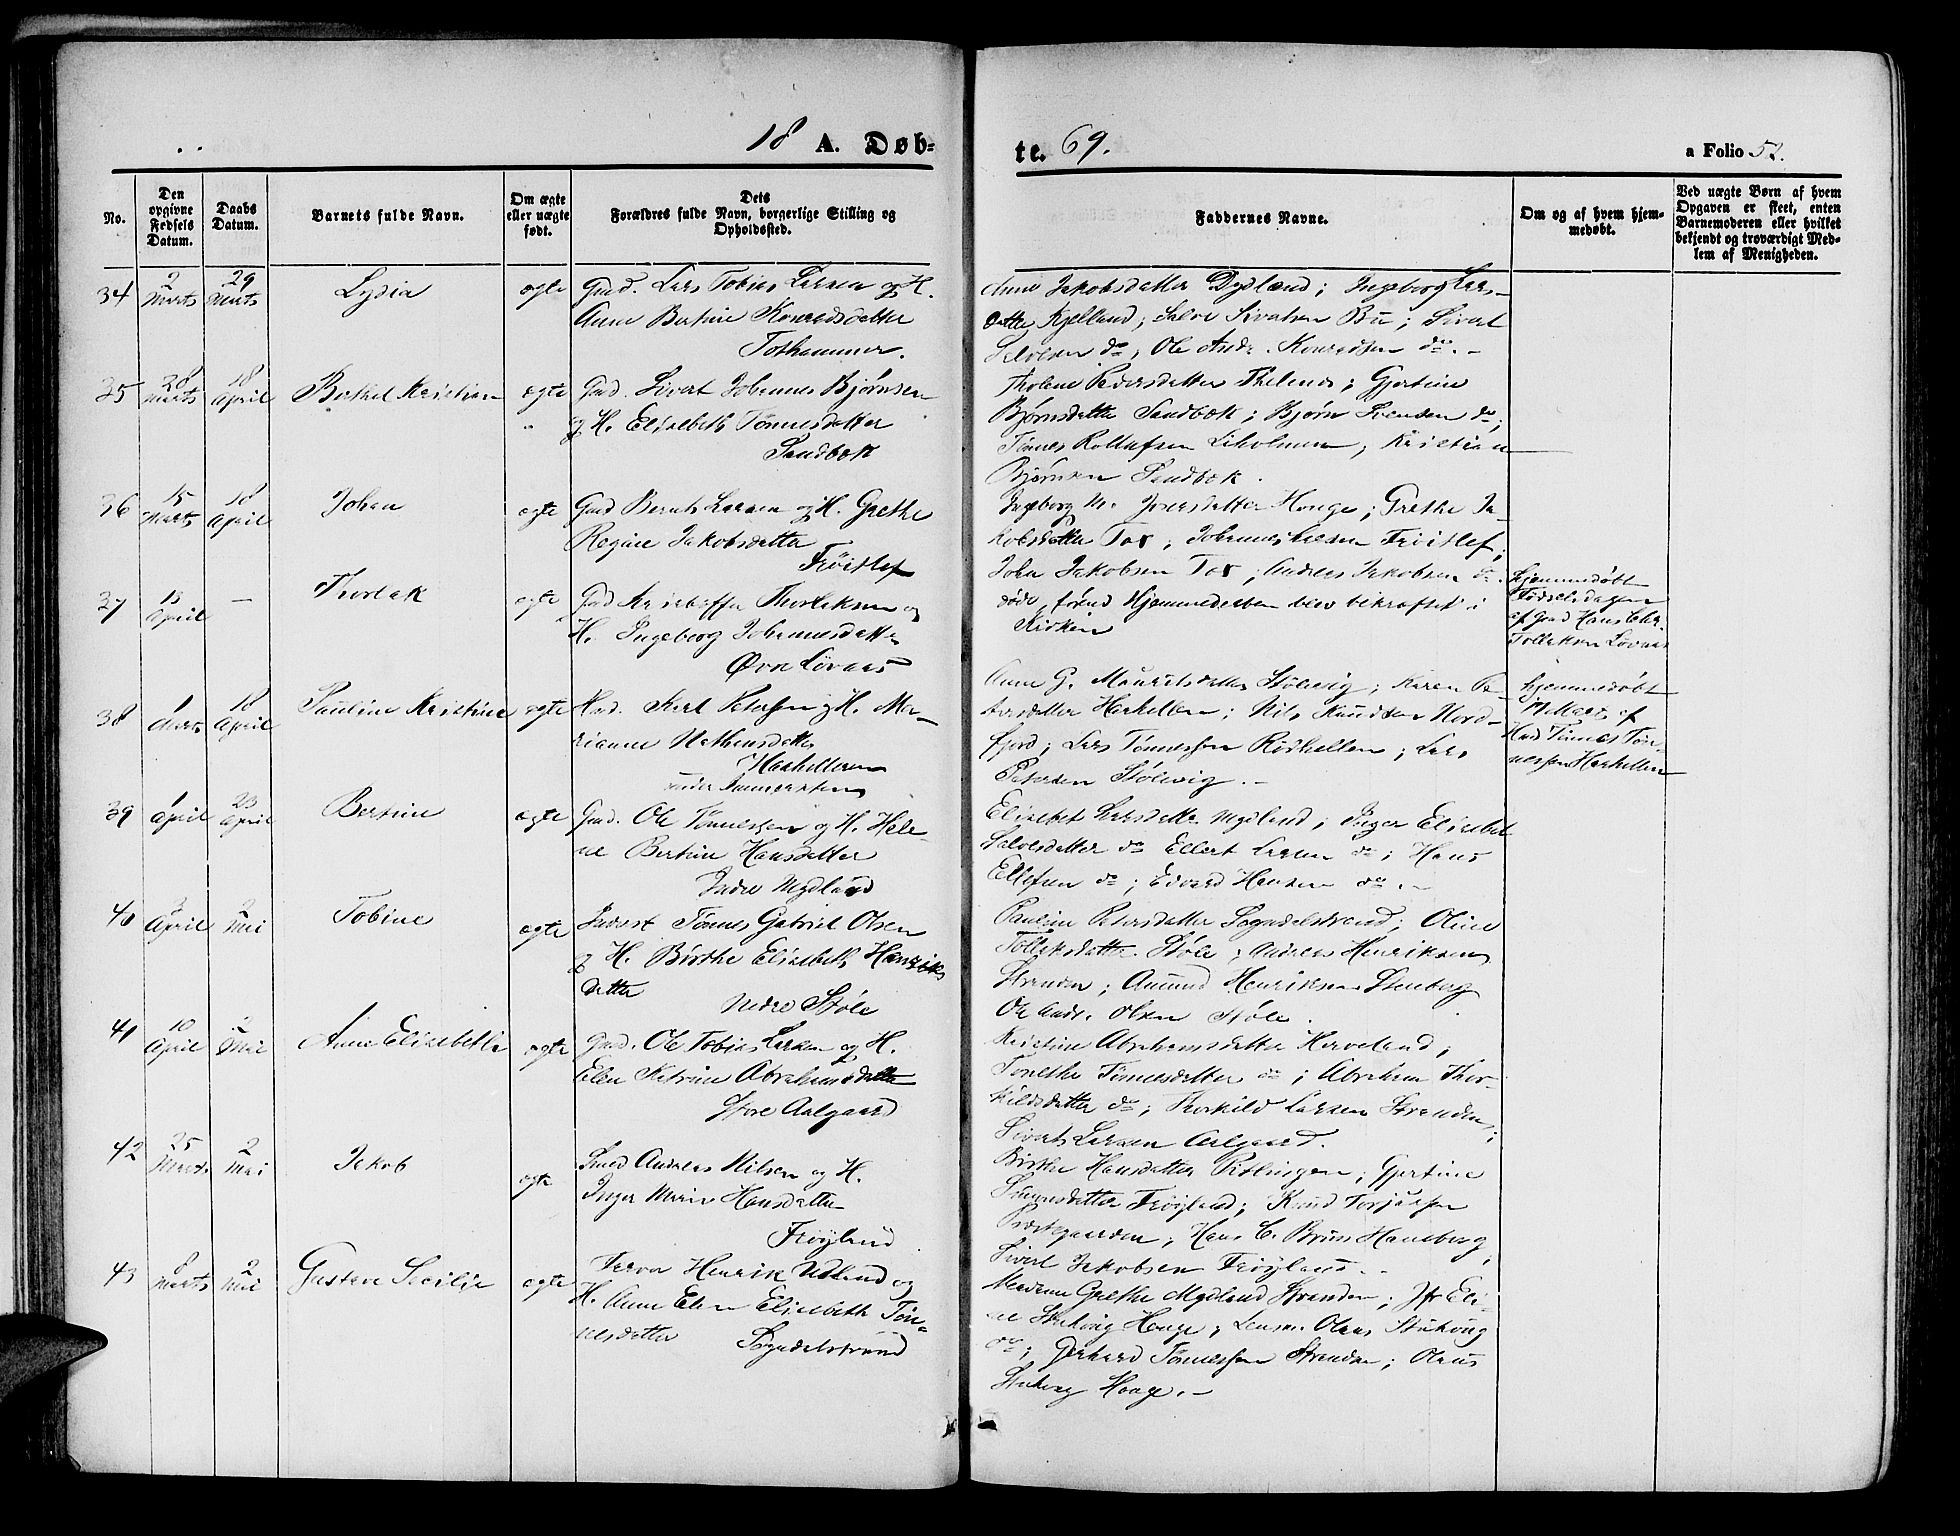 18 A. Døb-
te. 69.
a Folio 52.
No.
Den opgivne Fødsels Datum.
Daabs Datum.
Barnets fulde Navn.
Om ægte eller uægte født.
Dets Forældres fulde Navn, borgerlige Stilling og Opholdssted.
Faddernes Navne.
Om og af hvem hjemmedøbt.
Ved uægte Børn af hvem Opgaven er skeet, enten Barnemoderen eller hvilket bekjendt og troværdigt Medlem af Menigheden.
34
2 Marts
29 Marts
Lydia
ægte
Gmd. Lars Tobias Larsen og H.
Anne Bertine Konradsdatter
Tothammer.
Anne Jakobsdatter Dydland; Ingeborg Lars-
datter Kjelland; Salve Sivatsen Bu; Sivert
Salvesen do; Ole Andr. Konradsen do.-
35
28 Marts
18 April
Berthel Kristian
ægte
Gmd. Sivert Johannes Bjørnsen
og H. Elisebeth Tønnesdatter
Sandbæk
Tholene Pedersdatter Thelenes; Gjertine
Bjørnsdatter Sandbæk; Bjørn Svensen do;
Tønnes Rollufsen Liholmen; Kristian
Bjørnsen Sandbæk.
36
15 Marts
18 April
Johan
ægte
Gmd Bernt Larsen og H. Grethe
Regine Jakobsdatter
Frøitlef
Ingeborg M. Josefsdatter Hauge; Grethe Ja-
kobsdatter Tor; Johannes Larsen Frøitlef;
John Jakobsen Tor; Andreas Jakobsen do.
37
15 April
—
Thorlak
ægte
Gmd Kristoffer Thorlaksen og
H. Ingeborg Johannesdatter
Øvre Løvaas
døde, førend Hjemmedaaben blev bekræftet i
Kirken
hjemmedøbt
Fødselsdagen
af Gmd Hans Chr.
Tollaksen Løvaas
38
1 Marts
18 April
Pauline Kristine
ægte
Hmd. Karl Petersen og H. Ma-
rianne Nathansdatter
Haahelleren
under Immerstein
Anne G. Mauritsdatter Stølevig; Karen Pe-
dersdatter Haahellen; Nils Knudsen Nord-
fjord; Lars Tønnessen Røshellen; Lars
Petersen Stølevig.-
hjemmedøbt
Marts af
Hmd Tønnes Tøn-
nessen Haahellen
39
1 April
23 April
Bertine
ægte
Gmd. Ole Tønnessen og H. Hele-
ne Bertine Hansdatter
Indre Mydland
Elisebet Larsdatter Mydland; Inger Elisebet
Salvesdatter do Ellert Larsen do; Hans
Ellefsen do; Edvard Hansen do.-
40
3 April
2 Mai
Tobine
ægte
Inderst Tønnes Gabriel Olsen
og H. Birthe Elisebeth Henriks
datter
Nedre Støle
Pauline Petersdatter Sogndalstrand; Oline
Tollaksdatter Støle; Andreas Henriksen
Stranden; Amund Henriksen Stenberg
Ole Andr. Olsen Støle.
41
10 April
2 Mai
Anne Elisebeth
ægte
Gmd. Ole Tobias Larsen og H.
Elen Katrine Abrahamsdatter
Store Aalgaard
Kristine Abrahamsdatter Hæveland;
Tonethe Tønnesdatter do; Abraham Thor-
kildsdatter do; Thorkild Larsen Stranden;
Sivert Larsen Aalgaard.
42
25 Marts
2 Mai
Jakob
ægte
Smed Andreas Nilsen og H.
Inger Marie Hansdatter
Frøyland
Birthe Hansdatter Rethingen; Gjertine
Simonsdatter Frøyland; Knud Torjussen
Præstegaarden; Hans C. Bruns Haneberg;
Sivert Jakobsen Frøyland.-
43
8 Marts
2 Mai
Gustava Secilie
ægte
Farver Henrik Udland og
H. Anne Elen Elisebeth Tøn-
nesdatter
Sogndalstrand
Madam Grethe Mydland Stranden; Jfr Eli-
ne Stuhaug Hauge; Lensm. Olaus Stuhaug
do; Gerhard Tønnessen Stranden; Olaus
Stuhaug Hauge.-